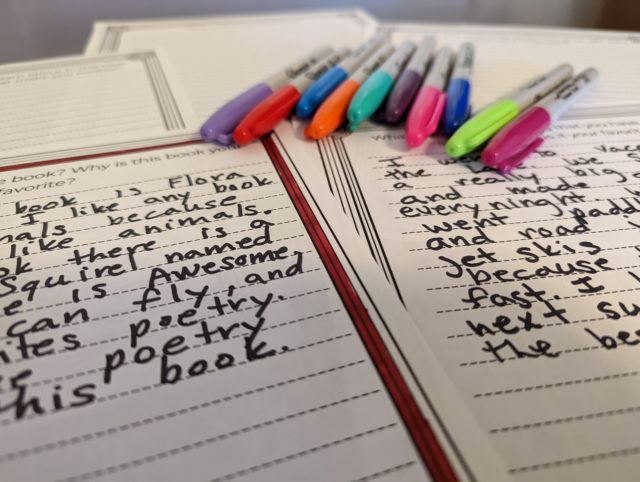 e book? Why is this book your
favorite?
book is Flora
I like any book
mals because
like animals.
ok there is a
Squirel named
e is Awesome,
can fly, and
ites poetry.
e poetry
this book.
that you have
your favorite
I
a really big
and made
everyninght
went paddl
and road
jet skis
because
fast. I
next su
the bea